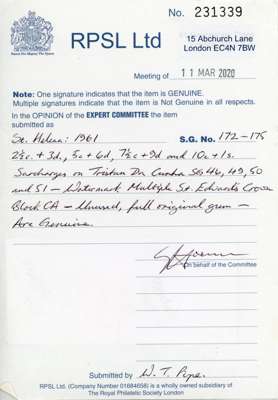 No. 231339
RPSL Ltd
15 Abchurch Lane
London EC4N 7BW
Meeting of 11 MAR 2020
Note: One signature indicates that the item is GENUINE.
Multiple signatures indicate that the item is Not Genuine in all respects.
In the OPINION of the EXPERT COMMITTEE the item
submitted as
St. Helena: 1961 S.G. No. 172-175
2½c. + 3d., 5c + 6d, 7½c + 9d and 10c + 1s.
Surcharges on Tristan Da Cunha SG 46, 49, 50
and 51 - Watermark Multiple St. Edward's Crown
Block CA - Unused, full original gum -
Are Genuine.
On behalf of the Committee
Submitted by W. T. Pipe.
RPSL Ltd. (Company Number 01684658) is a wholly owned subsidiary of
The Royal Philatelic Society London